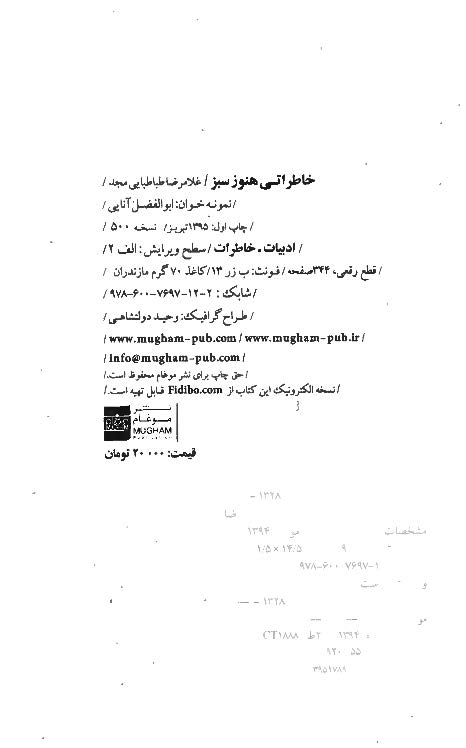 خاطراتی هنوز سبز / غلامرضا طباطبایی مجد /
/ نمونه خوان: ابوالفضل آنایی /
/ چاپ اول: ۱۳۹۵ تبریز / نسخه ۵۰۰ /
/ ادبیات - خاطرات / سطح ویرایش: الف ۲ /
/ قطع رقعی، ۳۴۴ صفحه / فونت: ب زر ۱۳ / کاغذ ۷۰ گرم مازندران /
/ شابک: ۲-۱۲-۷۶۹۷-۶۰۰-۹۷۸ /
/ طراح گرافیک: وحید دولتشاهی /
/ www.mugham-pub.com / www.mugham-pub.ir /
/ Info@mugham-pub.com /
/ حق چاپ برای نشر موغام محفوظ است. /
/ نسخه الکترونیک این کتاب از Fidibo.com قابل تهیه است. /
نشر
موغام
MUGHAM
قیمت: ۲۰۰۰۰ تومان
۱۳۲۸ -
ضا
مشخصات مو ۱۳۹۴
۹ ۱۴/۵ × ۱/۵
۹۷۸-۶۰۰ ۷۶۹۷-۱
و ست
۱۳۲۸ -
مو
۱۳۹۴ ۲ط CT۱۸۸۸
۹۲۰ ۵۵
۳۹۵۱۷۸۹